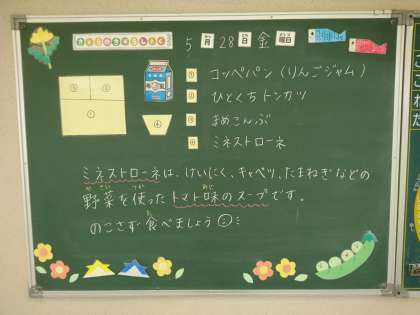 きょうのきゅうしょく
5月28日金曜日
① コッペパン(りんごジャム)
② ひとくちトンカツ
③ まめこんぶ
④ ミネストローネ
③ ②
①
④
ミネストローネは、けいにく、キャベツ、たまねぎなどの
野菜を使ったトマト味のスープです。
のこさず食べましょう